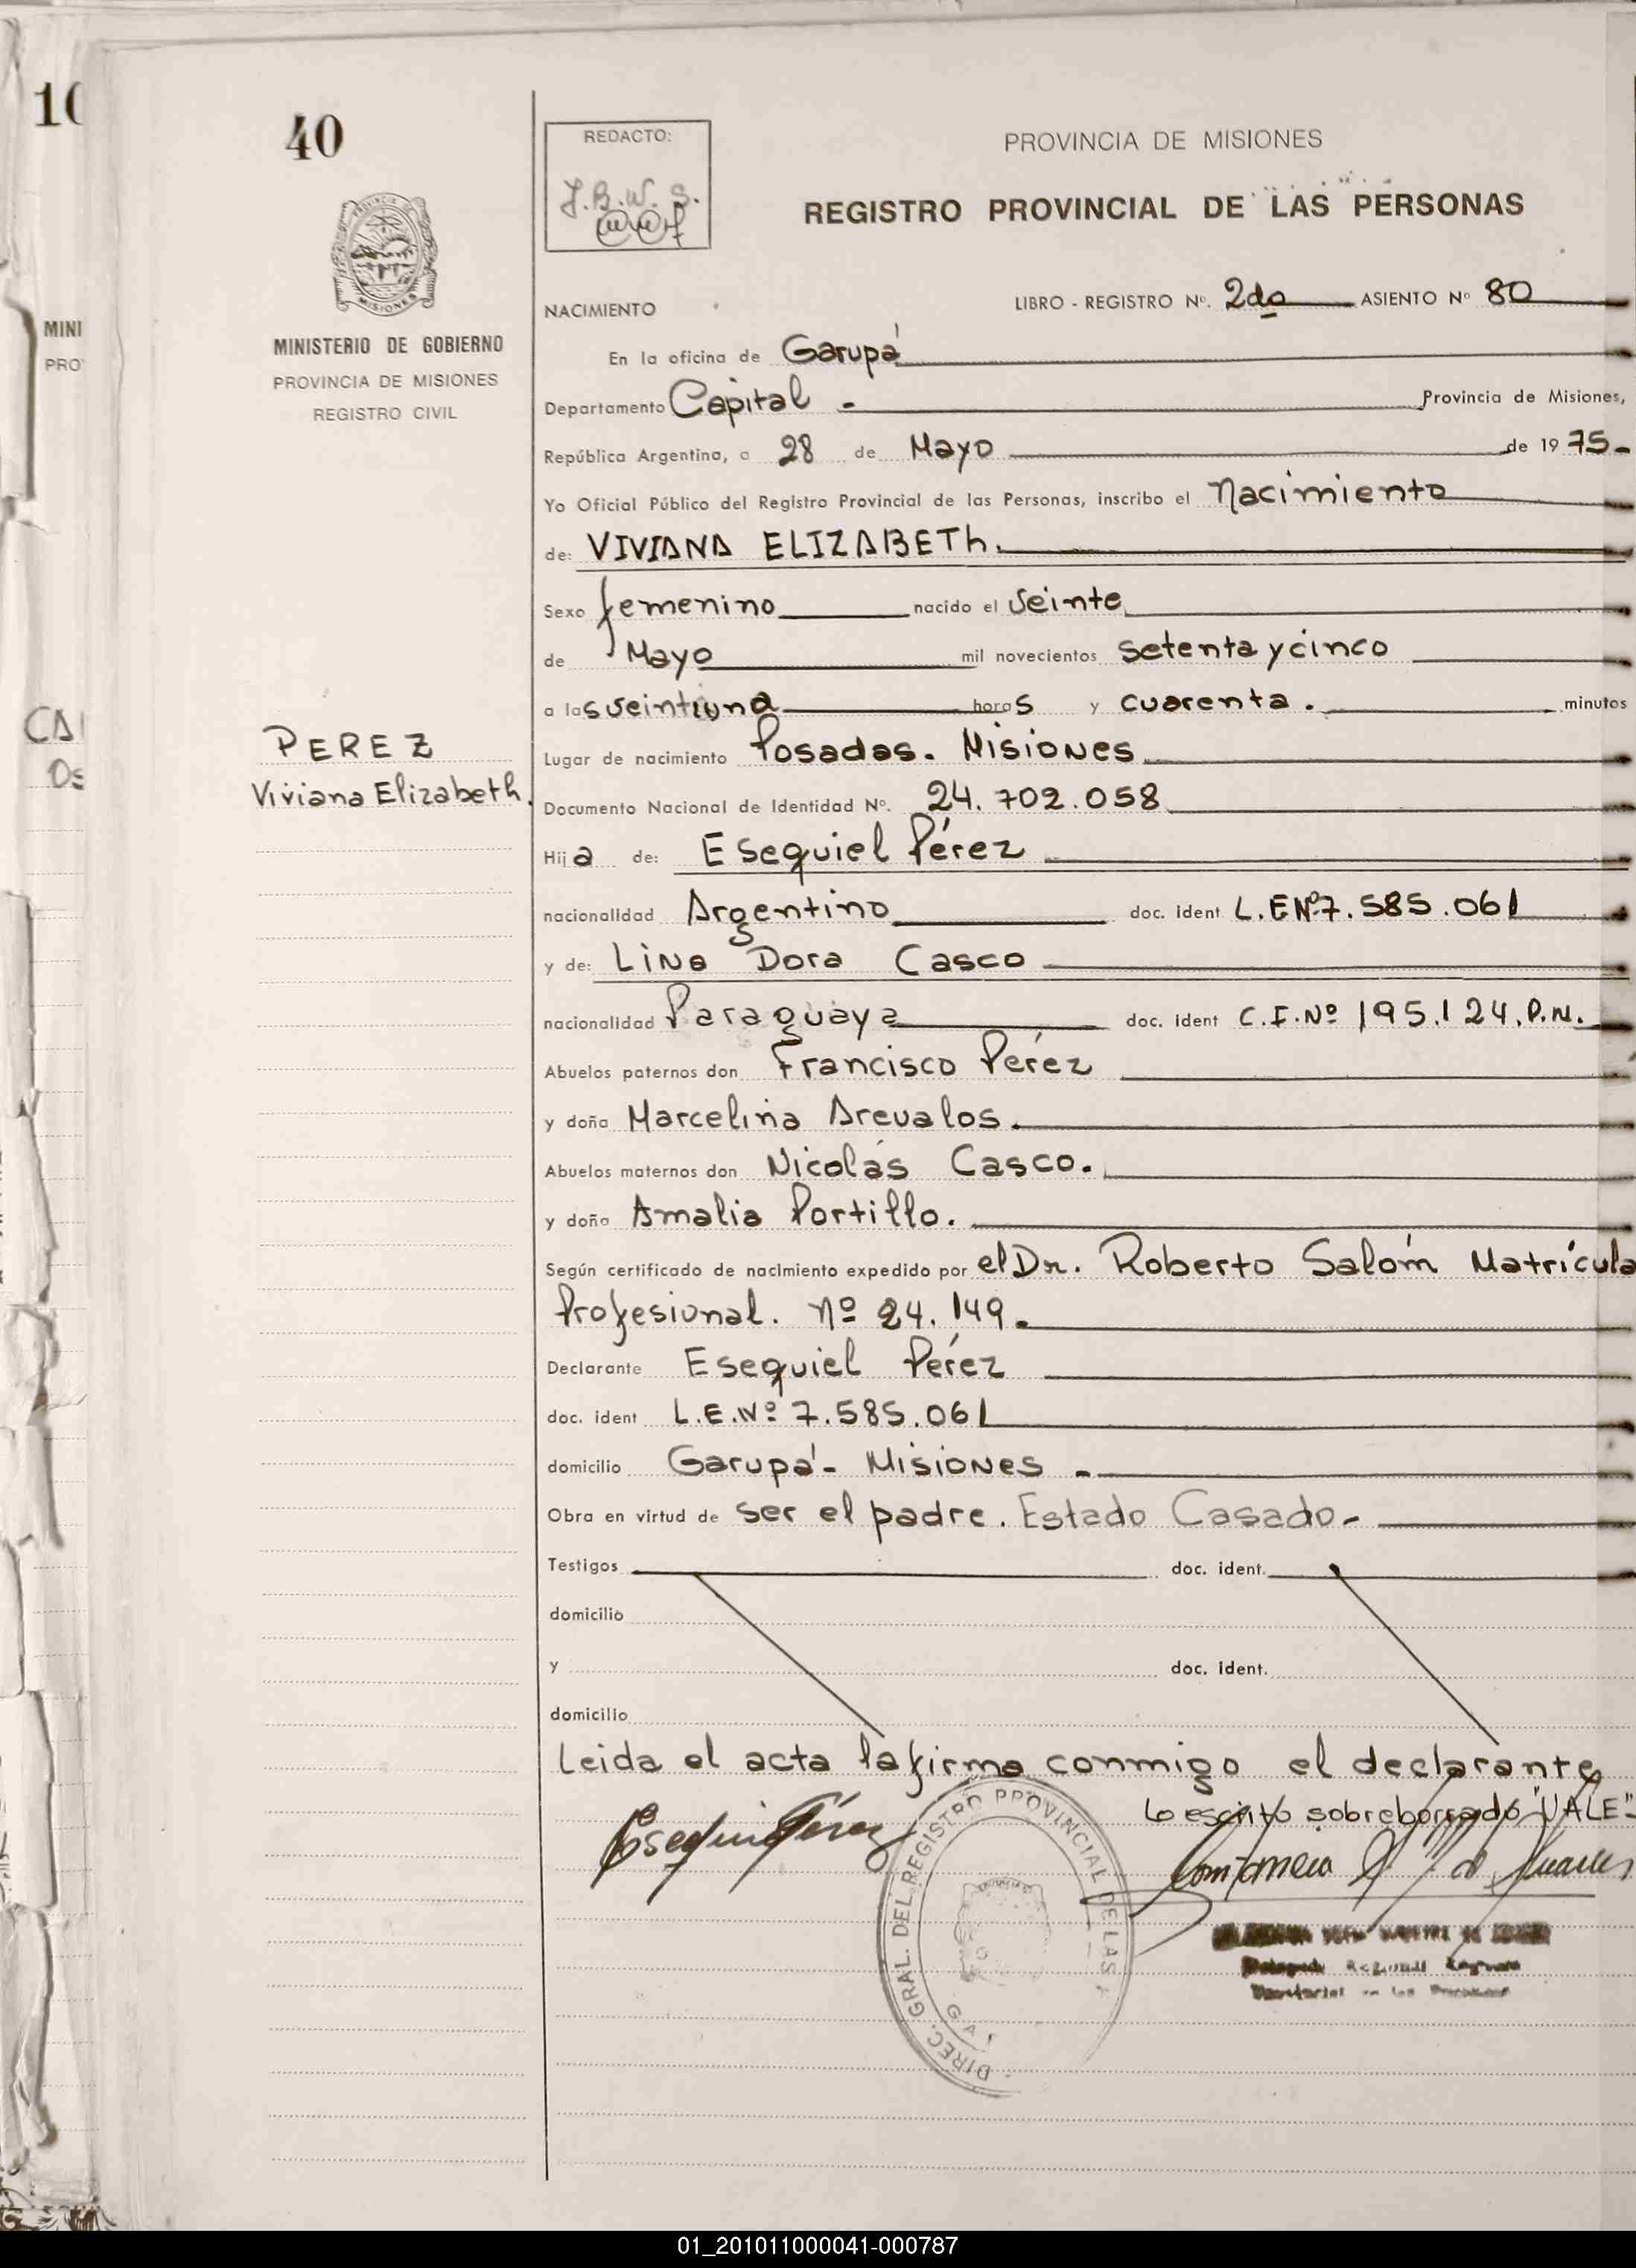 10
40
REDACTO:
J.B.W.S.
PROVINCIA DE MISIONES
REGISTRO PROVINCIAL DE LAS PERSONAS
MINISTERIO DE GOBIERNO
PROVINCIA DE MISIONES
REGISTRO CIVIL
MINI
PRO
NACIMIENTO LIBRO - REGISTRO Nº. 2do ASIENTO Nº 80
En la oficina de Garupá
Departamento Capital - Provincia de Misiones,
República Argentina, a 28 de Mayo de 1975-
Yo Oficial Público del Registro Provincial de las Personas, inscribo el Nacimiento
de: VIVIANA ELIZABETh.
Sexo femenino nacido el veinte
de Mayo mil novecientos setenta y cinco
a las veintiuna horas y cuarenta. minutos
PEREZ
Viviana Elizabeth.
Lugar de nacimiento Posadas. Misiones
Documento Nacional de Identidad Nº. 24.702.058
Hija de: Esequiel Pérez
nacionalidad Argentino doc. ident L.E Nº7.585.061
y de: Lina Dora Casco
nacionalidad Paraguaya doc. ident C.I.Nº 195.124.P.M.
Abuelos paternos don Francisco Pérez
y doña Marcelina Arevalos.
Abuelos maternos don Nicolás Casco.
y doña Amalia Portillo.
Según certificado de nacimiento expedido por el Dr. Roberto Salom Matrícula
Profesional. Nº 24.149.
Declarante Esequiel Pérez
doc. ident L.E.Nº 7.585.061
domicilio Garupá - Misiones -
Obra en virtud de ser el padre. Estado Casado.-
Testigos doc. ident.
domicilio
y doc. ident.
domicilio
Leida el acta la firma conmigo el declarante
Lo escrito sobreborrado "VALE"-
Esequiel Pérez
DIREC. GRAL. DEL REGISTRO PROVINCIAL DE LAS P
01_201011000041-000787